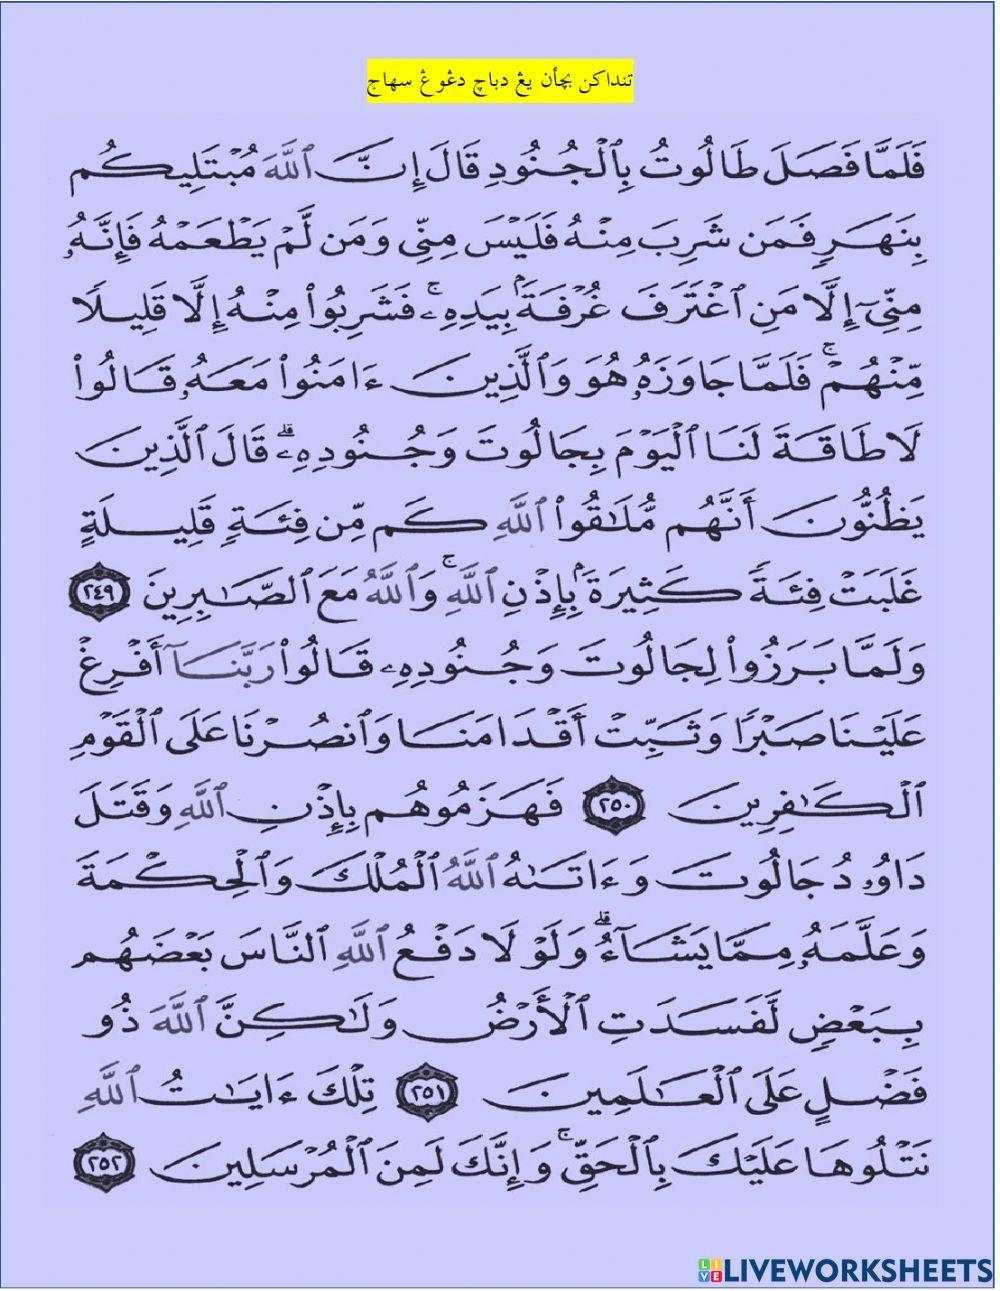 تنداكن بچأن يڠ دباچ دڠوڠ سهاج
فَلَمَّا فَصَلَ طَالُوتُ بِٱلْجُنُودِ قَالَ إِنَّ ٱللَّهَ مُبْتَلِيكُم
بِنَهَرٍ فَمَن شَرِبَ مِنْهُ فَلَيْسَ مِنِّى وَمَن لَّمْ يَطْعَمْهُ فَإِنَّهُۥ
مِنِّىٓ إِلَّا مَنِ ٱغْتَرَفَ غُرْفَةًۢ بِيَدِهِۦ ۚ فَشَرِبُوا۟ مِنْهُ إِلَّا قَلِيلًا
مِّنْهُمْ ۚ فَلَمَّا جَاوَزَهُۥ هُوَ وَٱلَّذِينَ ءَامَنُوا۟ مَعَهُۥ قَالُوا۟
لَا طَاقَةَ لَنَا ٱلْيَوْمَ بِجَالُوتَ وَجُنُودِهِۦ ۚ قَالَ ٱلَّذِينَ
يَظُنُّونَ أَنَّهُم مُّلَٰقُوا۟ ٱللَّهِ كَم مِّن فِئَةٍ قَلِيلَةٍ
غَلَبَتْ فِئَةً كَثِيرَةًۢ بِإِذْنِ ٱللَّهِ ۗ وَٱللَّهُ مَعَ ٱلصَّٰبِرِينَ ٢٤٩
وَلَمَّا بَرَزُوا۟ لِجَالُوتَ وَجُنُودِهِۦ قَالُوا۟ رَبَّنَآ أَفْرِغْ
عَلَيْنَا صَبْرًا وَثَبِّتْ أَقْدَامَنَا وَٱنصُرْنَا عَلَى ٱلْقَوْمِ
ٱلْكَٰفِرِينَ ٢٥٠ فَهَزَمُوهُم بِإِذْنِ ٱللَّهِ وَقَتَلَ
دَاوُۥدُ جَالُوتَ وَءَاتَىٰهُ ٱللَّهُ ٱلْمُلْكَ وَٱلْحِكْمَةَ
وَعَلَّمَهُۥ مِمَّا يَشَآءُ ۗ وَلَوْلَا دَفْعُ ٱللَّهِ ٱلنَّاسَ بَعْضَهُم
بِبَعْضٍ لَّفَسَدَتِ ٱلْأَرْضُ وَلَٰكِنَّ ٱللَّهَ ذُو
فَضْلٍ عَلَى ٱلْعَٰلَمِينَ ٢٥١ تِلْكَ ءَايَٰتُ ٱللَّهِ
نَتْلُوهَا عَلَيْكَ بِٱلْحَقِّ ۚ وَإِنَّكَ لَمِنَ ٱلْمُرْسَلِينَ ٢٥٢
LIVE LIVEWORKSHEETS